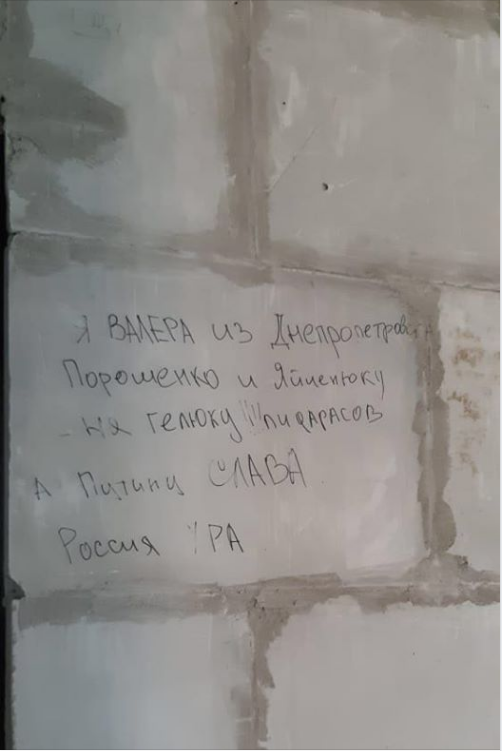 Я ВАЛЕРА из Днепропетровска
Порошенко и Яйценюку
- на гелюку !!! пидарасов
А Путину СЛАВА
Россия УРА